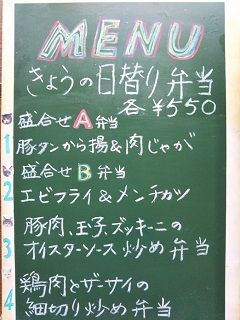 MENU
きょうの日替り弁当
各¥550
盛合せA弁当
1 豚タンから揚&肉じゃが
盛合せB弁当
2 エビフライ&メンチカツ
豚肉、玉子、ズッキーニの
3 オイスターソース炒め弁当
鶏肉とザーサイの
4 細切り炒め弁当